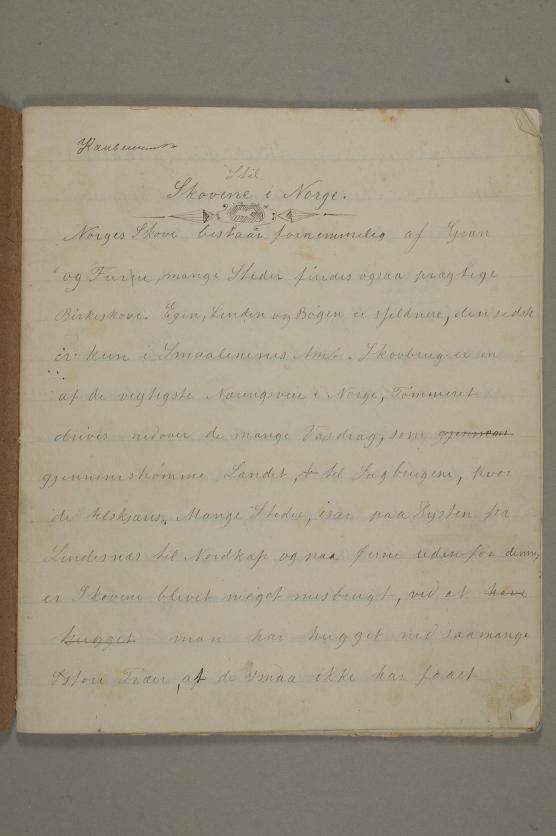 Stil
Skovene i Norge.
Norges Skove bestaar fornemmelig af Gran
og Furu, mange Steder findes ogsaa prægtige
Birkeskove. Egen, Linden og Bøgen er sjeldnere, den sidste
er kun i Smaalenenes Amt. Skovbrug er en
af de vigtigste Næringsveie i Norge, Tømmeret
drives nedover de mange Vasdrag, som gjennem
gjennemstrømme Landet, til Sagbrugene, hvor
de . Mange Steder, især paa Kysten fra
Lindesnæs til Nordkap og paa Øerne udenfor denne,
er Skovene blevet meget misbrugt, ved at have
hugget man har hugget ned saa mange
store Træer, at de smaa ikke har faaet